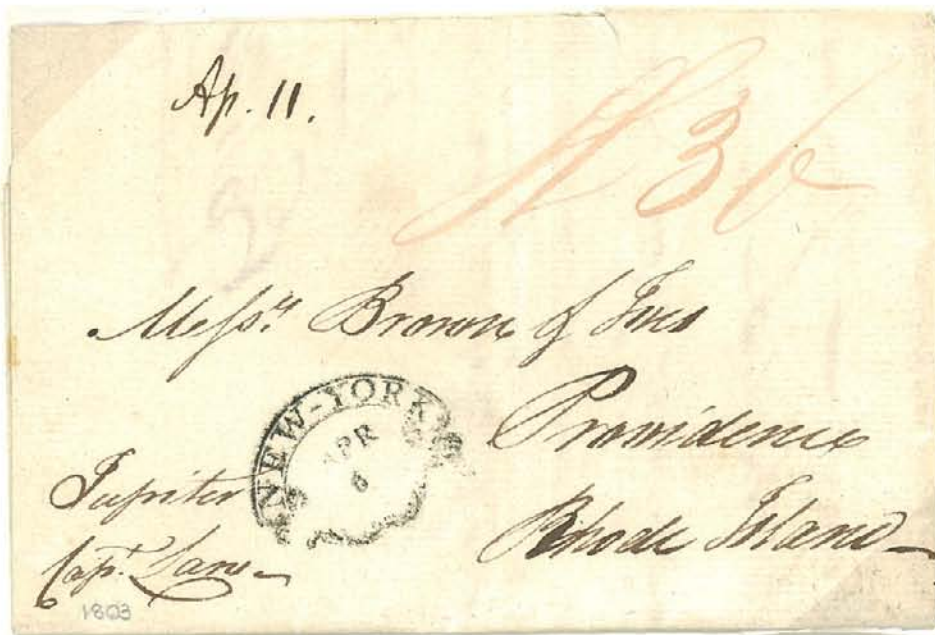 Ap. 11.
Messrs Brown & Ives
Providence
Rhode Island
NEW-YORK
APR
6
Jupiter
Capt. Lane
1803